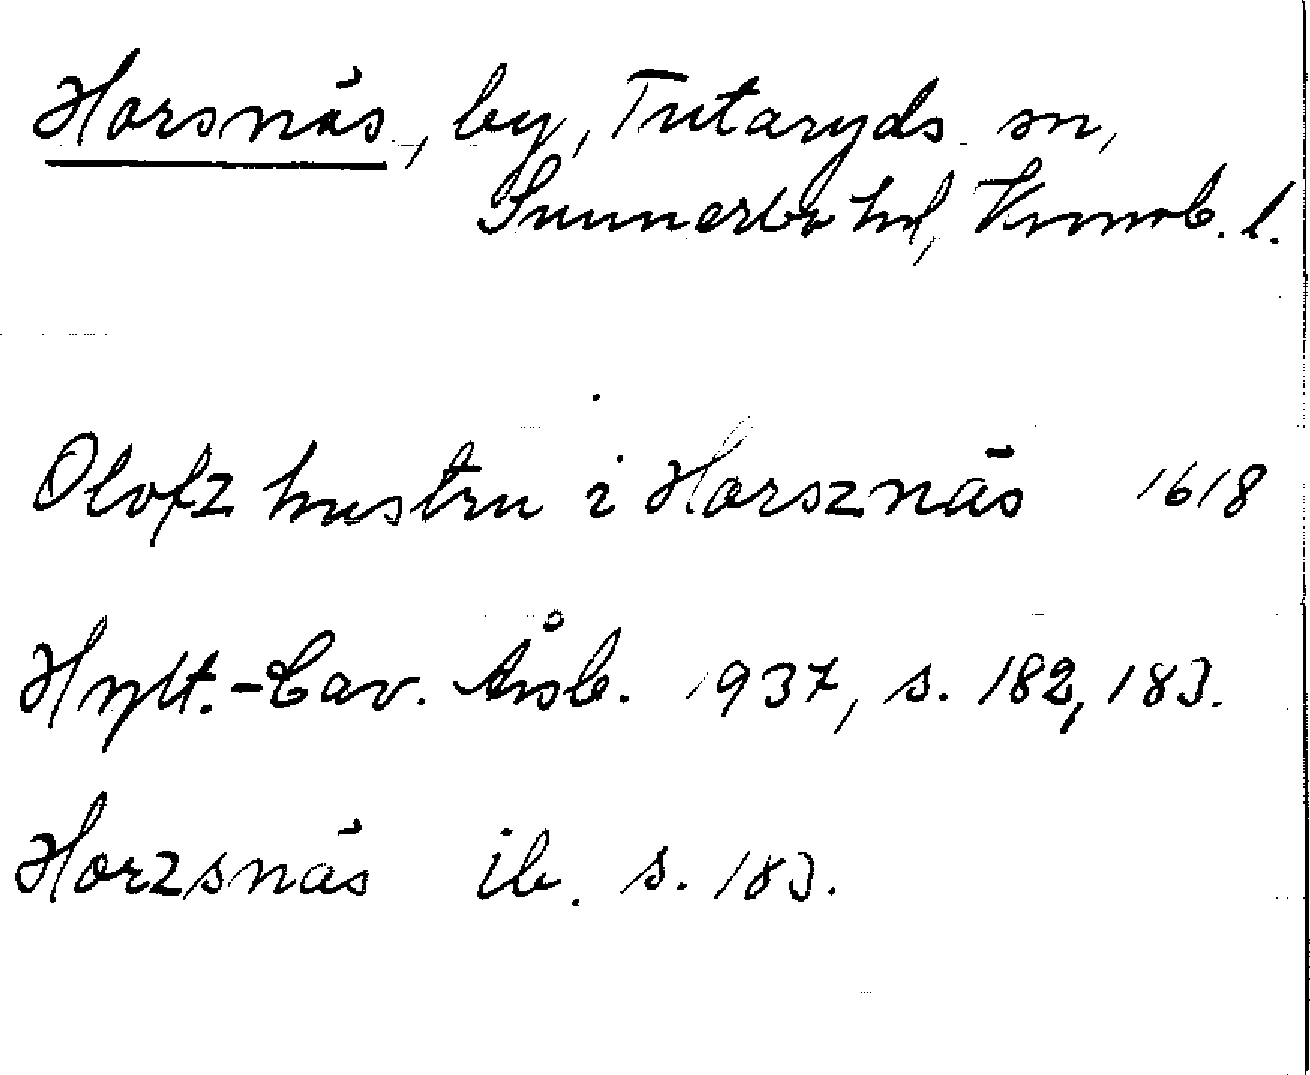 Horsnäs, by, Tutaryds sn,
Sunnerbo hd, Kronob. l.
Olofz hustru i Horsznäs 1618
Hylt.-Cav. Årsb. 1937, s. 182, 183.
Horzsnäs ib. s. 183.